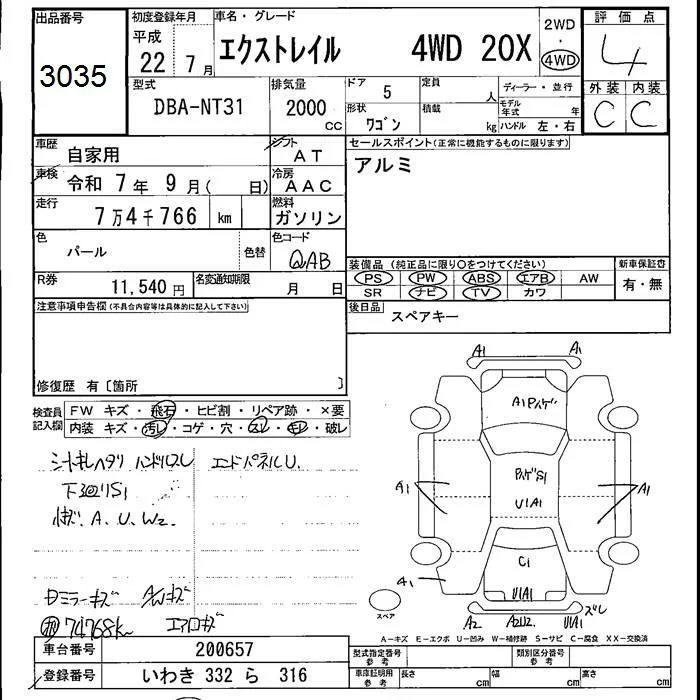 出品番号
3035
初度登録年月
平成
22 7月
車名・グレード
エクストレイル 4WD 20X
2WD
・
4WD
評価点
4
外装 内装
C C
型式
DBA-NT31
排気量
2000
CC
ドア
5
定員
人
ディーラー・並行
形状
ワゴン
積載
kg
モデル年式 年
ハンドル 左・右
車歴
自家用
シフト
AT
車検
令和 7年 9月( 日)
冷房
AAC
走行
7万4千766 km
燃料
ガソリン
色
パール
色替
色コード
QAB
R券
11,540円
名変通知期限
月 日
セールスポイント(正常に機能するものに限ります)
アルミ
装備品 (純正品に限り○をつけてください)
PS PW ABS エアB AW
SR ナビ TV カワ
新車保証書
有・無
後日品
スペアキー
注意事項申告欄(不具合内容等は具体的に記入して下さい)
修復歴 有〔箇所 〕
検査員記入欄
FW キズ・飛石・ヒビ割・リペア跡・×要
内装 キズ・汚レ・コゲ・穴・スレ・キレ・破レ
シートキレヘタリ ハンドルスレ
エンドパネルU.
下廻りS1
A.U.W2.
ミラーキズ A/Wキズ
74768k
エアロキズ
A1 A1
A1
S1
U1A1
A1
A1
C1
U1A1
A1
スペア
A2 A2U2. U1A1
ズレ
A-キズ E-エクボ U-凹み W-補修跡 S-サビ C-腐食 XX-交換済
車台番号
200657
登録番号
いわき 332 ら 316
型式指定番号
参考
類別区分番号
参考
車庫証明用
参考
長さ cm 幅 cm 高さ cm